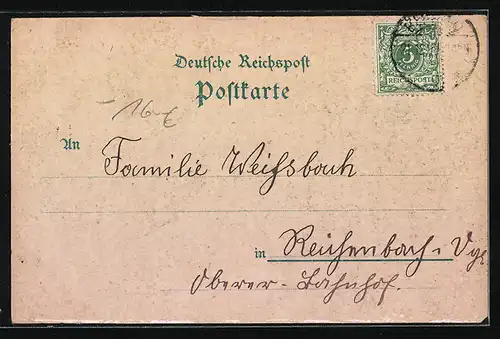 Deutsche Reichspost
Postkarte
5
REICHSPOST
- 16 €
An Familie Weißbach
in Reichenbach i. Vgl
Oberer-Bahnhof.